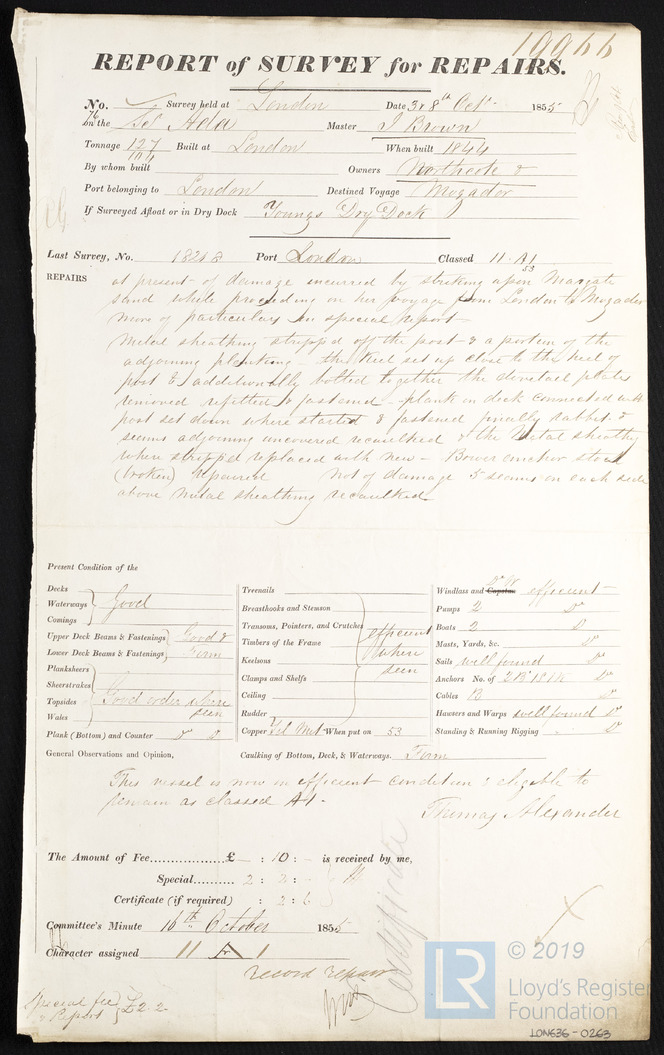 19966
REPORT of SURVEY for REPAIRS.
No. Survey held at London Date 3 & 8th Oct. 1855
76
on the Sr Ada Master J Brown
Tonnage 127 Built at London When built 1844
104
By whom built Owners Northcote &
Port belonging to London Destined Voyage Mogador
If Surveyed Afloat or in Dry Dock Youngs Dry Dock
Last Survey, No. 18248 Port London Classed 11. A1
53
REPAIRS at present of damage incurred by striking upon Margate
sand while proceeding on her voyage from London to Mogador
more of particulars in special report
Metal sheathing stripped off the post & a portion of the
adjoining planking - the keel set up close to the heel of
post & additionally bolted together the dovetail plates
removed refitted & fastened - plank on deck connected with
post set down where started & fastened finally rabbit &
seams adjoining uncovered recaulked & the Metal sheathg
where stripped replaced with new - Bower anchor stock
(broken) repaired not of damage 5 seams on each side
above metal sheathing recaulked
Present Condition of the
Decks
Waterways Good
Comings
Upper Deck Beams & Fastenings Good &
Lower Deck Beams & Fastenings Firm
Planksheers
Sheerstrakes
Topsides Good order where
Wales seen
Plank (Bottom) and Counter Do Do
Treenails
Breasthooks and Stemson
Transoms, Pointers, and Crutches efficient
Timbers of the Frame where
Keelsons seen
Clamps and Shelfs
Ceiling
Rudder
Copper Yel Met When put on 53
Windlass and Capstan efficient
Pumps 2 Do
Boats 2 Do
Masts, Yards, &c. Do
Sails well found Do
Anchors No. of 2B 1S 1K Do
Cables Do
Hawsers and Warps well found Do
Standing & Running Rigging Do
General Observations and Opinion, Caulking of Bottom, Deck, & Waterways. Firm
This vessel is now in efficient condition & eligible to
remain as classed A1.
Thomas Alexander
The Amount of Fee £ - : 10 : - is received by me,
Special 2 : 2 : -
Certificate (if required) : 2 : 6
Certificate
Committee's Minute 16th October 1855
Character assigned 11 A 1
record repairs
Special fee
& Report } £2.2
© 2019
LR
Lloyd's Register
Foundation
LON636-0263